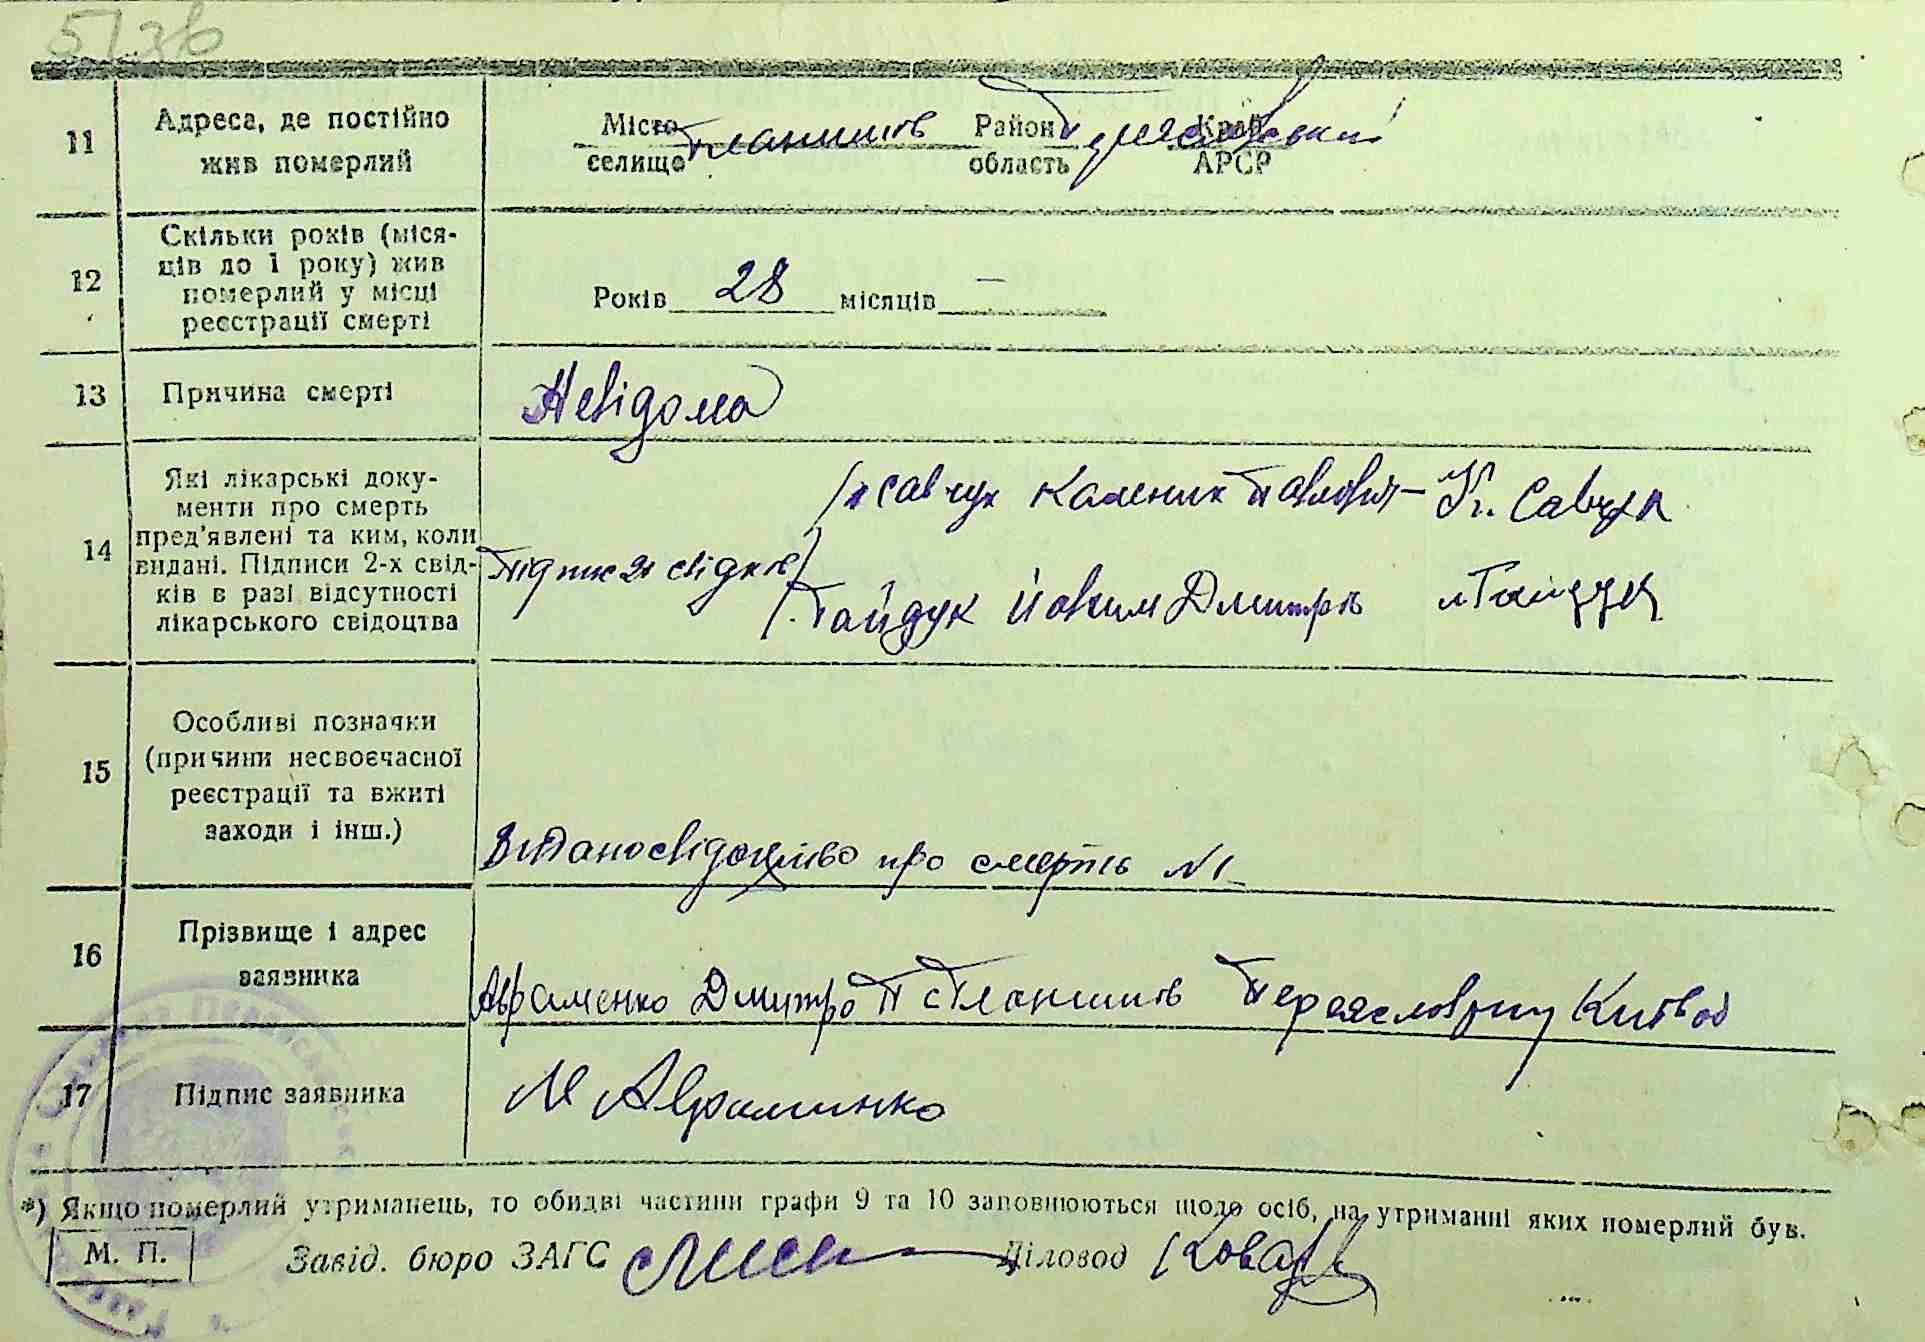 5136
11
Адреса, де постійно
жив померлий
Місто
селище
Район
область
Край
АРСР
12
Скільки років (міся-
ців до 1 року) жив
померлий у місці
реєстрації смерті
Років 28 місяців —
13
Причина смерті
Невідома
14
Які лікарські доку-
менти про смерть
пред'явлені та ким, коли
видані. Підписи 2-х свід-
ків в разі відсутності
лікарського свідоцтва
Савчук Каленик Павлович – К. Савчук
Гайдук Йоким Дмитров
15
Особливі позначки
(причини несвоєчасної
реєстрації та вжиті
заходи і інш.)
про смерть №1
16
Прізвище і адрес
заявника
Авраменко Дмитро П
17
Підпис заявника
*) Якщо померлий утриманець, то обидві частини графи 9 та 10 заповнюються щодо осіб, на утриманні яких померлий був.
М. П.
Завід. бюро ЗАГС
Діловод